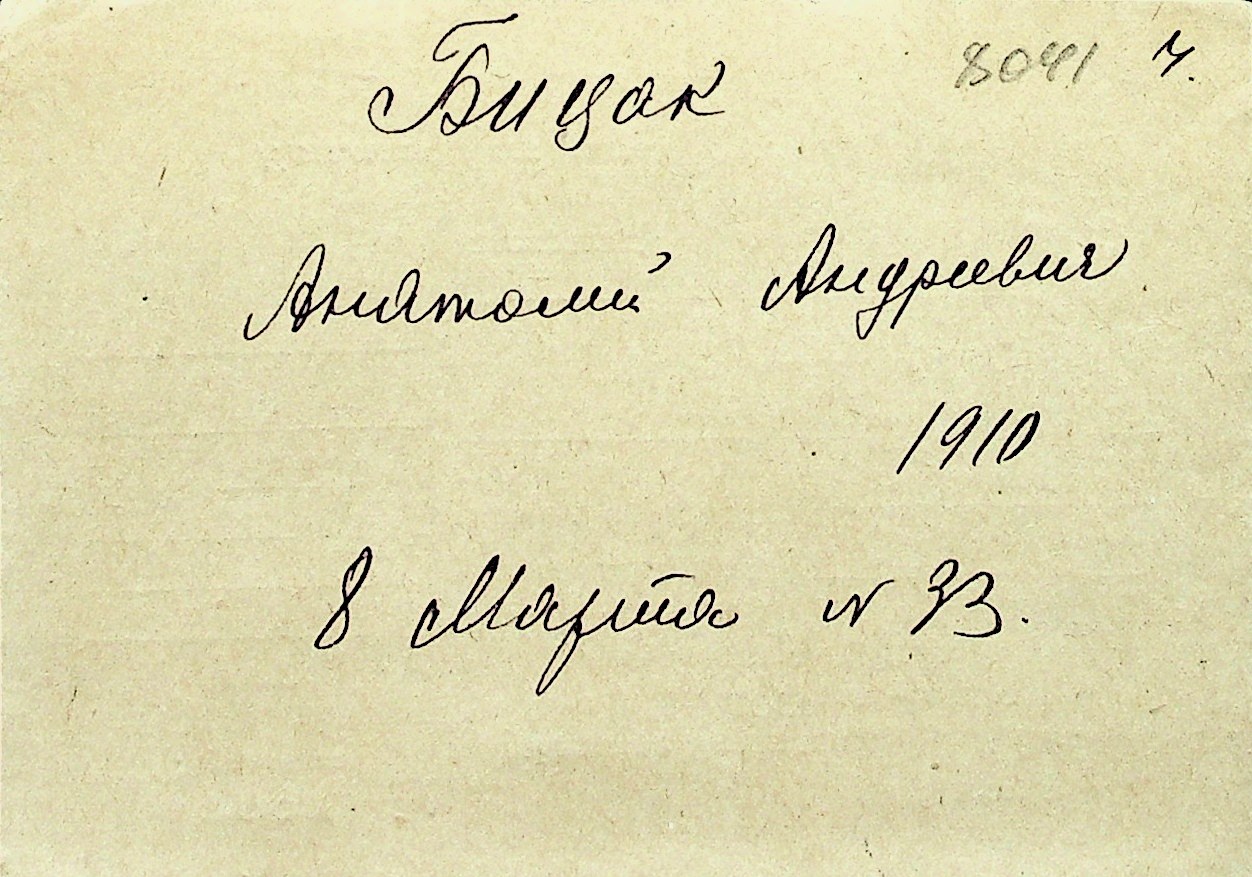 8041 ч.
Бицак
Анатолий Андреевич
1910
8 Марта N 33.